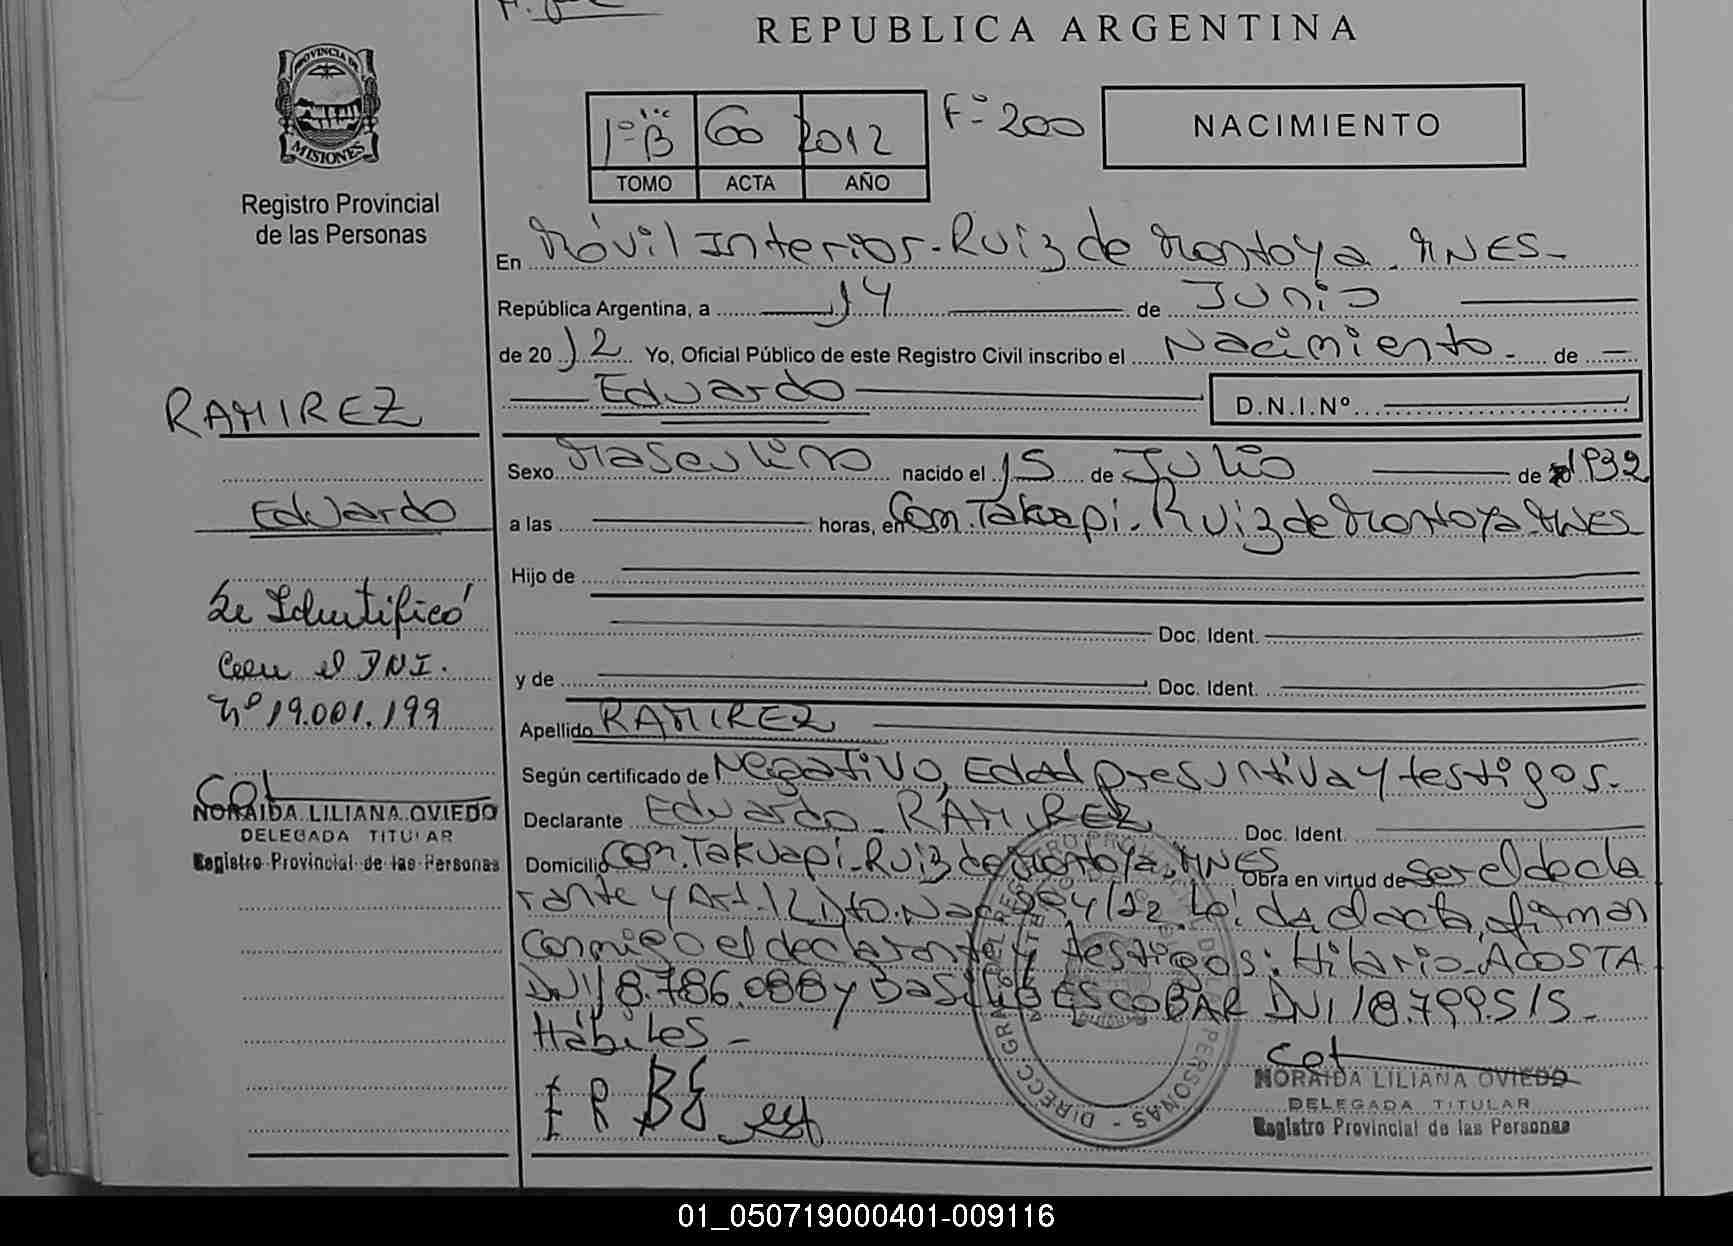 REPUBLICA ARGENTINA
PROVINCIA DE
MISIONES
Registro Provincial
de las Personas
1º B 60 2012 Fº 200
TOMO ACTA AÑO
NACIMIENTO
En Móvil Interior - Ruiz de Montoya. MNES-
República Argentina, a 14 de Junio
de 2012 Yo, Oficial Público de este Registro Civil inscribo el Nacimiento - de
Eduardo D.N.I.Nº
Sexo Masculino nacido el 15 de Julio de 1932
a las horas, en Com. Takuapi - Ruiz de Montoya MNES
Hijo de
Doc. Ident.
y de Doc. Ident.
Apellido RAMIREZ
Según certificado de Negativo, Edad presuntiva y testigos.
Declarante Eduardo RAMIREZ Doc. Ident.
Domicilio Com. Takuapi - Ruiz de Montoya, MNES Obra en virtud de ser el decla
rante y Art. 12 Dto. Nac. /12. Leída el acta, firman
conmigo el declarante y testigos: Hilario ACOSTA
DNI 18.786.088 y Basilio ESCOBAR DNI 18.799.515-
Hábiles -
E R BE
NORAIDA LILIANA OVIEDO
DELEGADA TITULAR
Registro Provincial de las Personas
RAMIREZ
Eduardo
Se Identificó
con el DNI.
Nº 19.001.199
NORAIDA LILIANA OVIEDO
DELEGADA TITULAR
Registro Provincial de las Personas
01_050719000401-009116